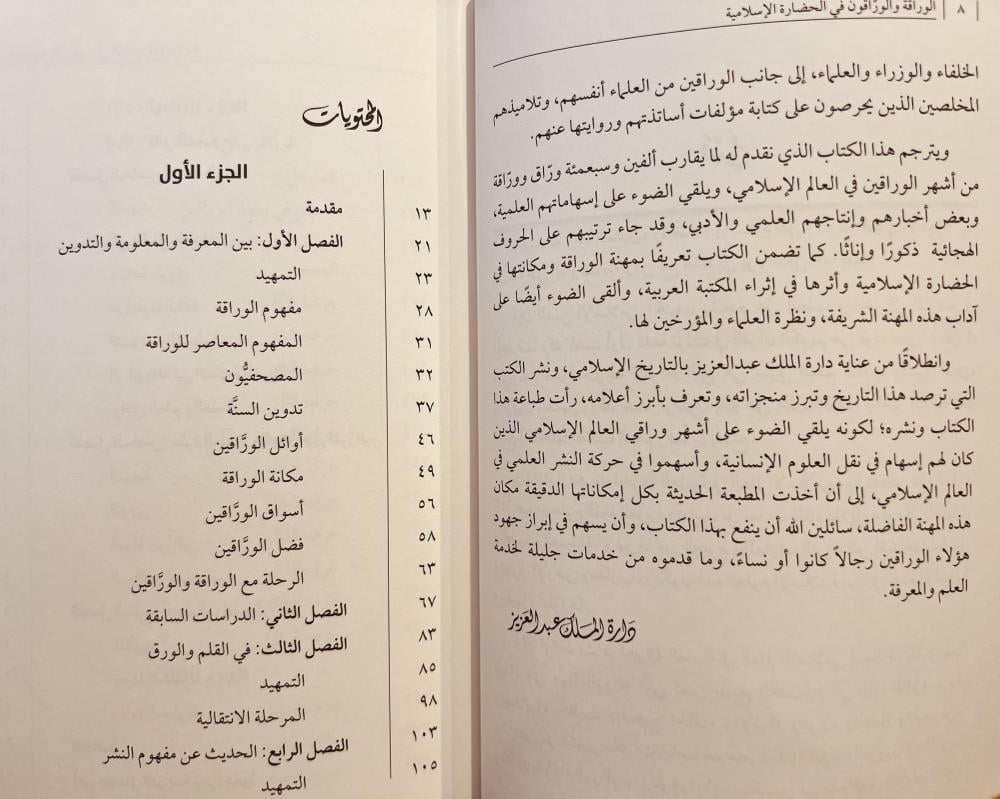 ٨ الوراقة والورّاقون في الحضارة الإسلامية
الخلفاء والوزراء والعلماء، إلى جانب الوراقين من العلماء أنفسهم، وتلاميذهم
المخلصين الذين يحرصون على كتابة مؤلفات أساتذتهم وروايتها عنهم.
ويترجم هذا الكتاب الذي نقدم له لما يقارب ألفين وسبعمئة ورّاق وورّاقة
من أشهر الوراقين في العالم الإسلامي، ويلقي الضوء على إسهاماتهم العلمية،
وبعض أخبارهم وإنتاجهم العلمي والأدبي، وقد جاء ترتيبهم على الحروف
الهجائية ذكورًا وإناثًا. كما تضمن الكتاب تعريفًا بمهنة الوراقة ومكانتها في
الحضارة الإسلامية وأثرها في إثراء المكتبة العربية، وألقى الضوء أيضًا على
آداب هذه المهنة الشريفة، ونظرة العلماء والمؤرخين لها.
وانطلاقًا من عناية دارة الملك عبدالعزيز بالتاريخ الإسلامي، ونشر الكتب
التي ترصد هذا التاريخ وتبرز منجزاته، وتعرف بأبرز أعلامه، رأت طباعة هذا
الكتاب ونشره؛ لكونه يلقي الضوء على أشهر وراقي العالم الإسلامي الذين
كان لهم إسهام في نقل العلوم الإنسانية، وأسهموا في حركة النشر العلمي في
العالم الإسلامي، إلى أن أخذت المطبعة الحديثة بكل إمكاناتها الدقيقة مكان
هذه المهنة الفاضلة، سائلين الله أن ينفع بهذا الكتاب، وأن يسهم في إبراز جهود
هؤلاء الوراقين رجالاً كانوا أو نساءً، وما قدموه من خدمات جليلة لخدمة
العلم والمعرفة.
دارة الملك عبدالعزيز
المحتويات
الجزء الأول
مقدمة ١٣
الفصل الأول: بين المعرفة والمعلومة والتدوين ٢١
التمهيد ٢٣
مفهوم الوراقة ٢٨
المفهوم المعاصر للوراقة ٣١
المصحفيُّون ٣٢
تدوين السنَّة ٣٧
أوائل الورَّاقين ٤٦
مكانة الوراقة ٤٩
أسواق الورَّاقين ٥٦
فضل الورَّاقين ٥٨
الرحلة مع الوراقة والورَّاقين ٦٣
الفصل الثاني: الدراسات السابقة ٦٧
الفصل الثالث: في القلم والورق ٨٣
التمهيد ٨٥
المرحلة الانتقالية ٩٨
الفصل الرابع: الحديث عن مفهوم النشر ١٠٣
التمهيد ١٠٥